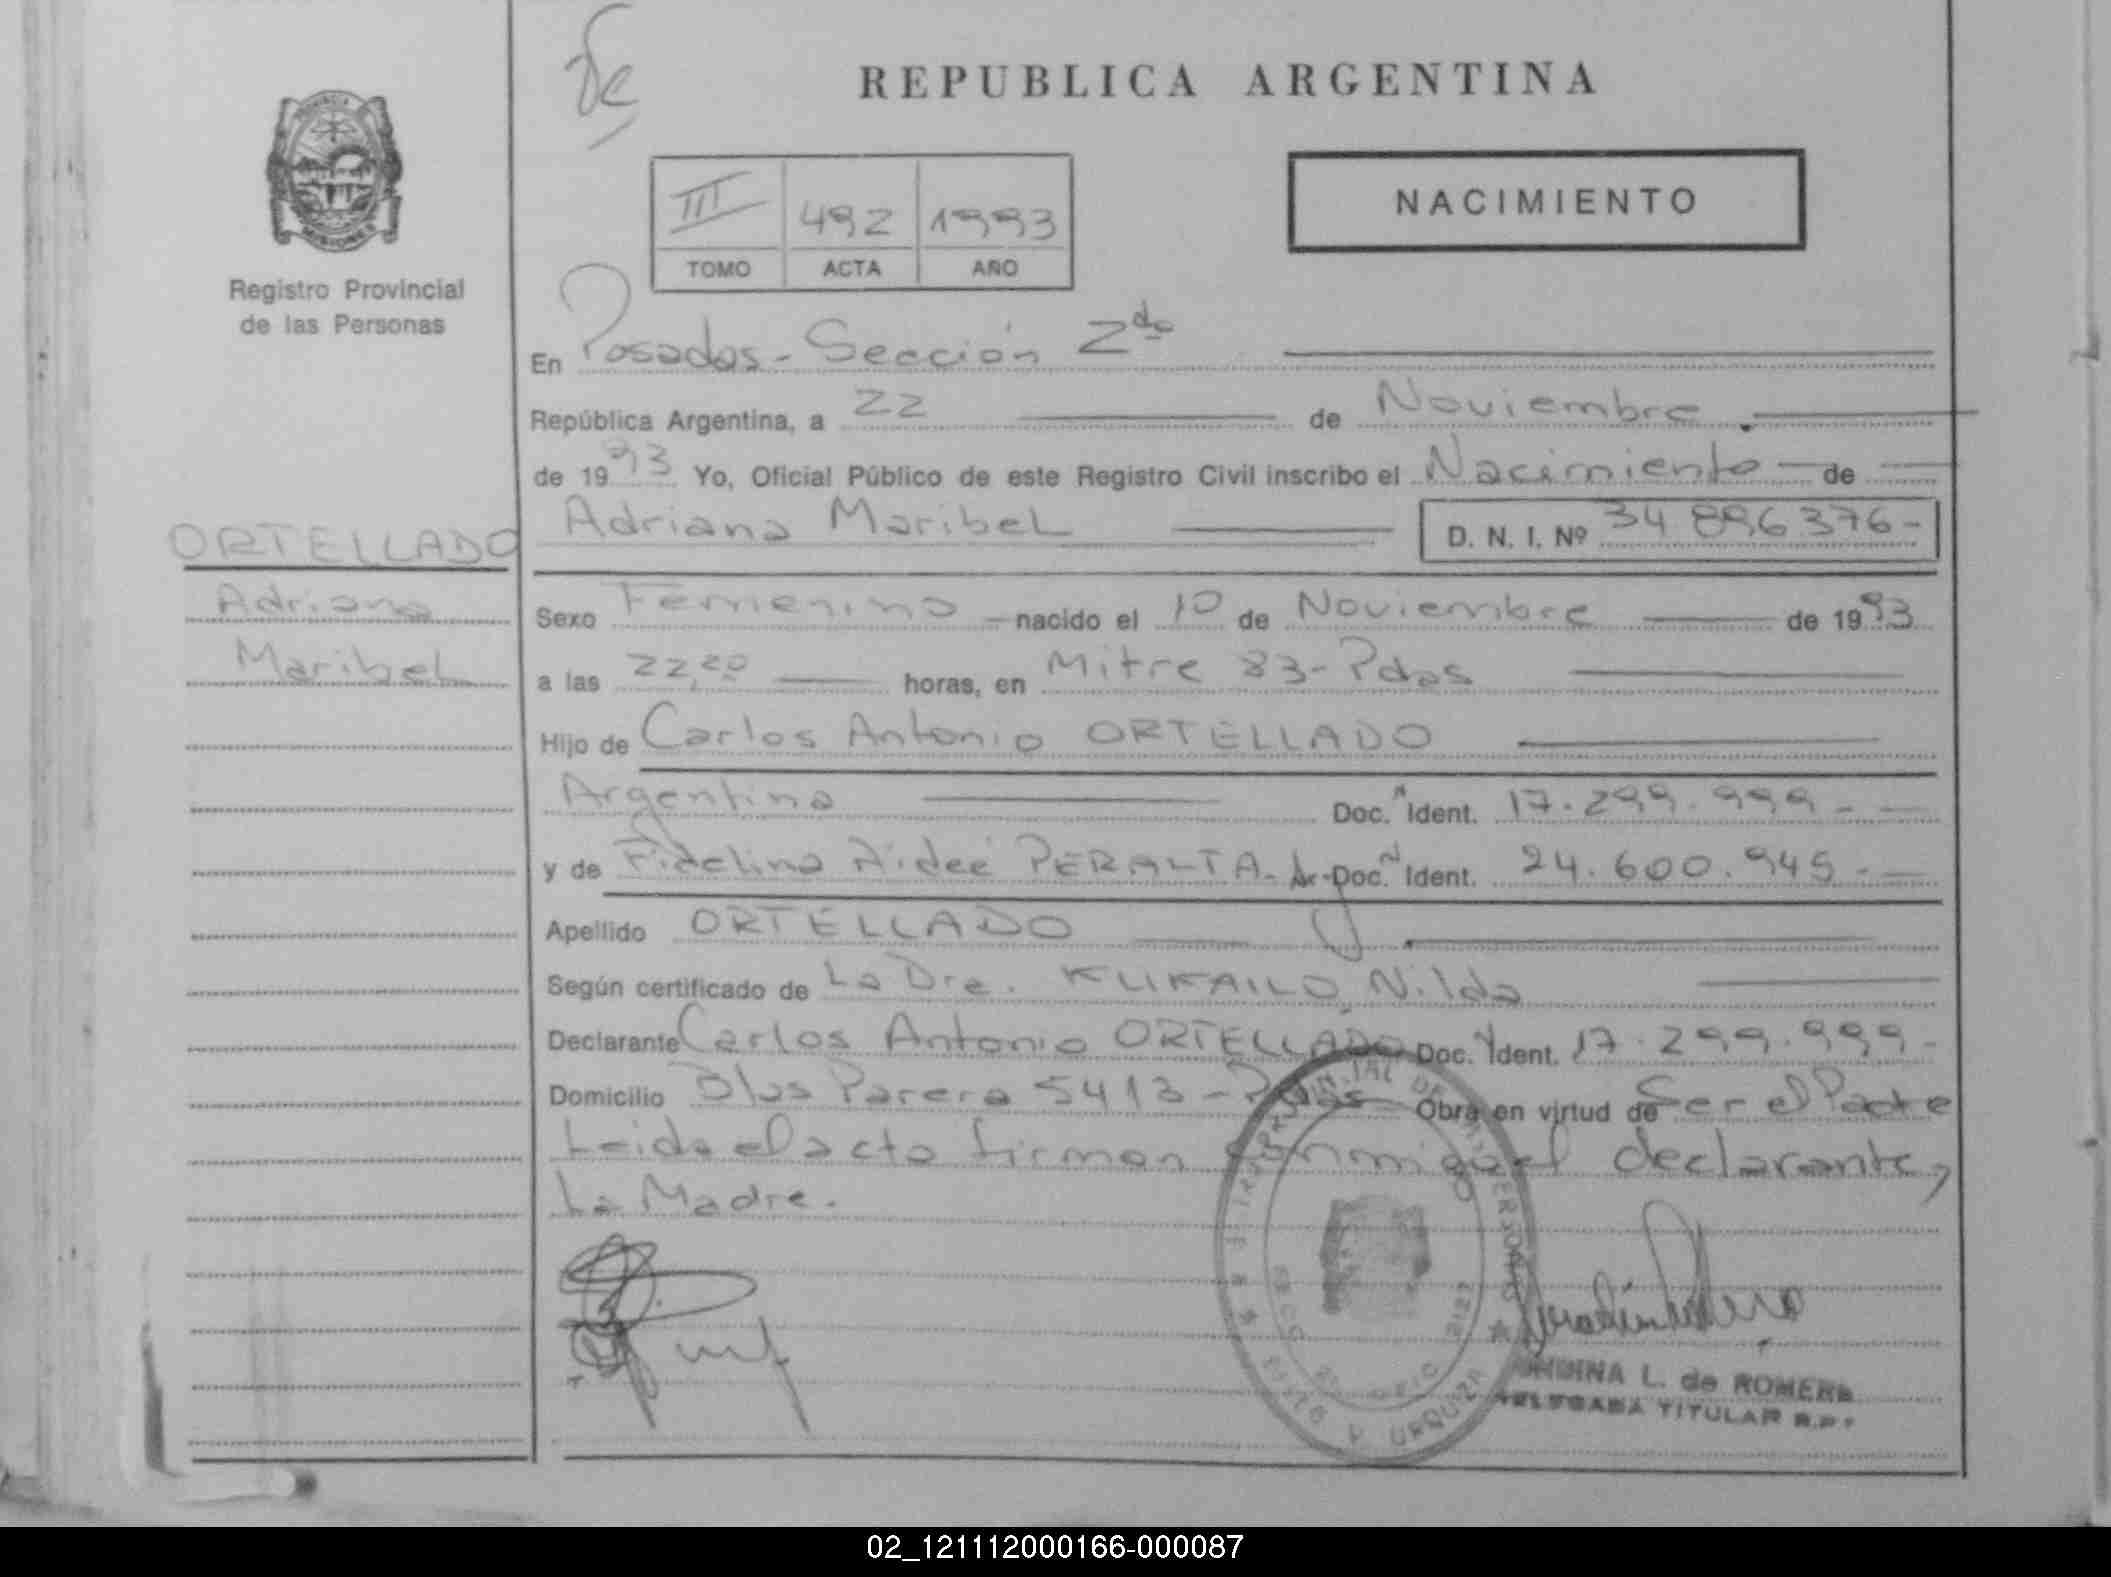 REPUBLICA ARGENTINA
NACIMIENTO
III 492 1993
TOMO ACTA AÑO
Registro Provincial
de las Personas
ORTELLADO
Adriana
Maribel
En Posadas - Sección 2da
República Argentina, a 22 de Noviembre
de 1993 Yo, Oficial Público de este Registro Civil inscribo el Nacimiento de
Adriana Maribel D. N. I. Nº 34 896 376 -
Sexo Femenino nacido el 10 de Noviembre de 1993
a las 22,20 horas, en Mitre 83 - Pdas
Hijo de Carlos Antonio ORTELLADO
Argentina Doc. Ident. 17.299.999 -
y de Fidelina Aideé PERALTA - Ar- Doc. Ident. 24.600.945 -
Apellido ORTELLADO
Según certificado de La Dra. Nilda
Declarante Carlos Antonio ORTELLADO Doc. Ident. 17.299.999 -
Domicilio Blas Parera 5413 - Pdas Obra en virtud de Ser el Padre
Leida el acta firman conmigo el declarante,
La Madre.
L. de ROMERO
DELEGADA TITULAR R.P.
02_121112000166-000087